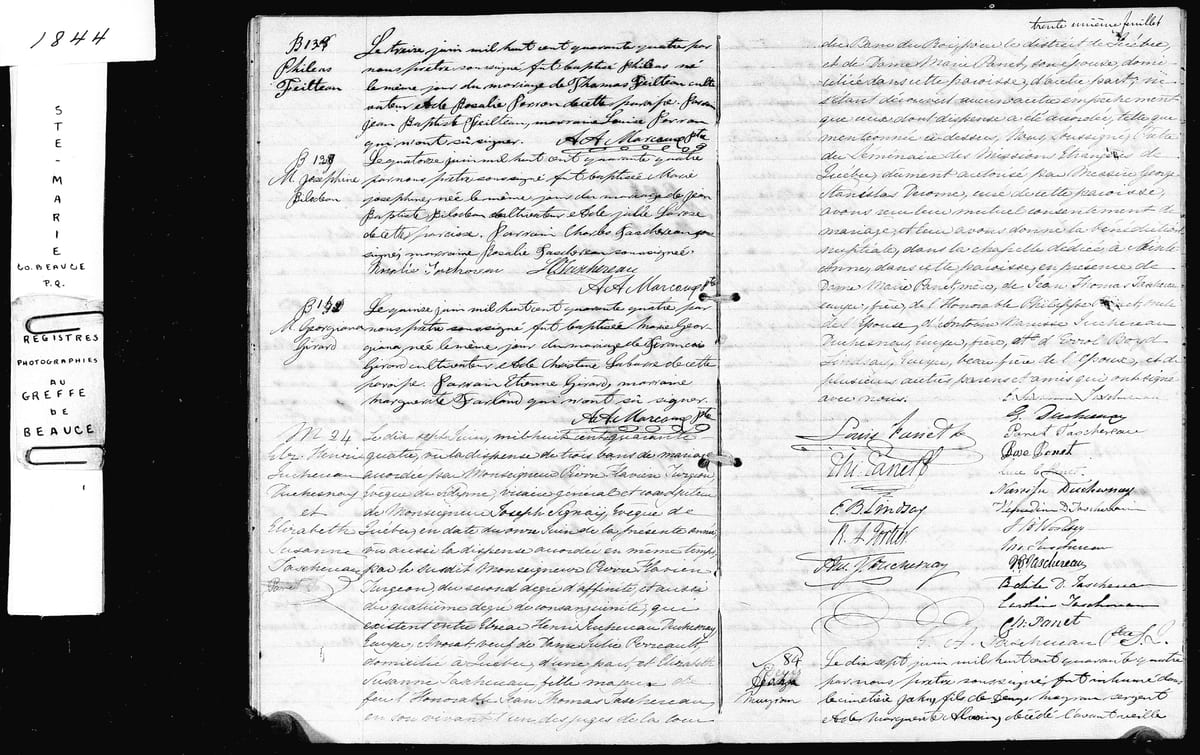 1844
STE-MARIE
CO. BEAUCE
P.Q.
REGISTRES
PHOTOGRAPHIES
AU
GREFFE
DE
BEAUCE
B 129
Phileas
Feilteau
Le treize juin mil huit cent quarante quatre par
nous prêtre soussigné fut baptisé Phileas né
le même jour du mariage de Thomas Feilteau culti
vateur et de Rosalie Parran de cette paroisse. Parrain
Jean Baptiste Feilteau, marraine Louise Parran
qui n'ont su signer. A A Marcoux ptre
M. Josephine
Bilodeau
Le quatorze juin mil huit cent quarante quatre
par nous prêtre soussigné fut baptisée Marie
josephine, née le même jour du mariage de jean
Baptiste Bilodeau cultivateur et de julie
de cette paroisse. Parrain Charles Taschereau sous
signé, marraine Rosalie Taschereau soussignée
A A Marcoux ptre
M. Georgiana
Girard
Le quinze juin mil huit cent quarante quatre par
nous prêtre soussigné fut baptisée Marie Geor
giana, née le même jour du mariage de Francois
Girard cultivateur et de Christine Labarre de cette
paroisse. Parrain Etienne Girard, marraine
marguerite Farland qui n'ont su signer.
A A Marcoux ptre
M 24
Henri
Juchereau
Duchesnay
et
Elizabeth
Susanne
Taschereau
Le dix sept Juin, mil huit cent quarante
quatre, vu la dispense de trois bans de mariage
accordée par Monseigneur Pierre Flavien Turgeon
Evêque de Sidyme, vicaire general et coadjuteur
de Monseigneur Joseph Signay, Evêque de
Québec, en date du onze Juin de la présente année,
vu aussi la dispense accordée en même temps,
par le susdit Monseigneur Pierre Flavien
Turgeon, du second degré d'affinité, et aussi
du quatrième degré de consanguinité, qui
existent entre Elzear Henri Juchereau Duchesnay
Ecuyer, Avocat, veuf de Dame Julie Perreault,
domicilié à Québec, d'une part, et Elizabeth
Susanne Taschereau, fille majeure de
feu l'Honorable Jean Thomas Taschereau,
en son vivant l'un des juges de la Cour
trente unième feuillet
du Banc du Roi pour le district de Québec,
et de Dame Marie Panet, son épouse, domi
ciliée dans cette paroisse, d'autre part; ne
s'étant découvert aucun autre empêchement
que ceux dont dispense a été accordée, telle que
mentionnée ci dessus, Nous, soussigné, Prêtre
du Séminaire des Missions Etrangères de
Québec, dument autorisé par Messire George
Stanislas Derome, curé de cette paroisse,
avons reçu leur mutuel consentement de
mariage, et leur avons donné la bénédiction
nuptiale, dans la chapelle dédiée à Sainte
Anne, dans cette paroisse, en présence de
Dame Marie Panet, mère, de Jean Thomas Taschereau
Ecuyer, frère, de l'Honorable Philippe Panet, oncle
de l'épouse, d'Antoine Narcisse Juchereau
Duchesnay, Ecuyer, frère, et d'Errol Boyd
Lindsay, Ecuyer, beau frère de l'époux, et de
plusieurs autres parens et amis qui ont signé
avec nous.
E. Susanne Taschereau
Louis Panet
Panet Taschereau
Phi. Panet
E. B. Lindsay
Narcisse Duchesnay
Taschereau
Phil J Duchesnay
Taschereau
Adèle D. Taschereau
Taschereau
Ch. Panet
E. A. Taschereau Ptre S. Q.
S 84
Le dix sept juin mil huit cent quarante quatre
par nous prêtre soussigné fut inhumé dans
le cimetière John, fils de sergent
et de marguerite décédé l'avant veille